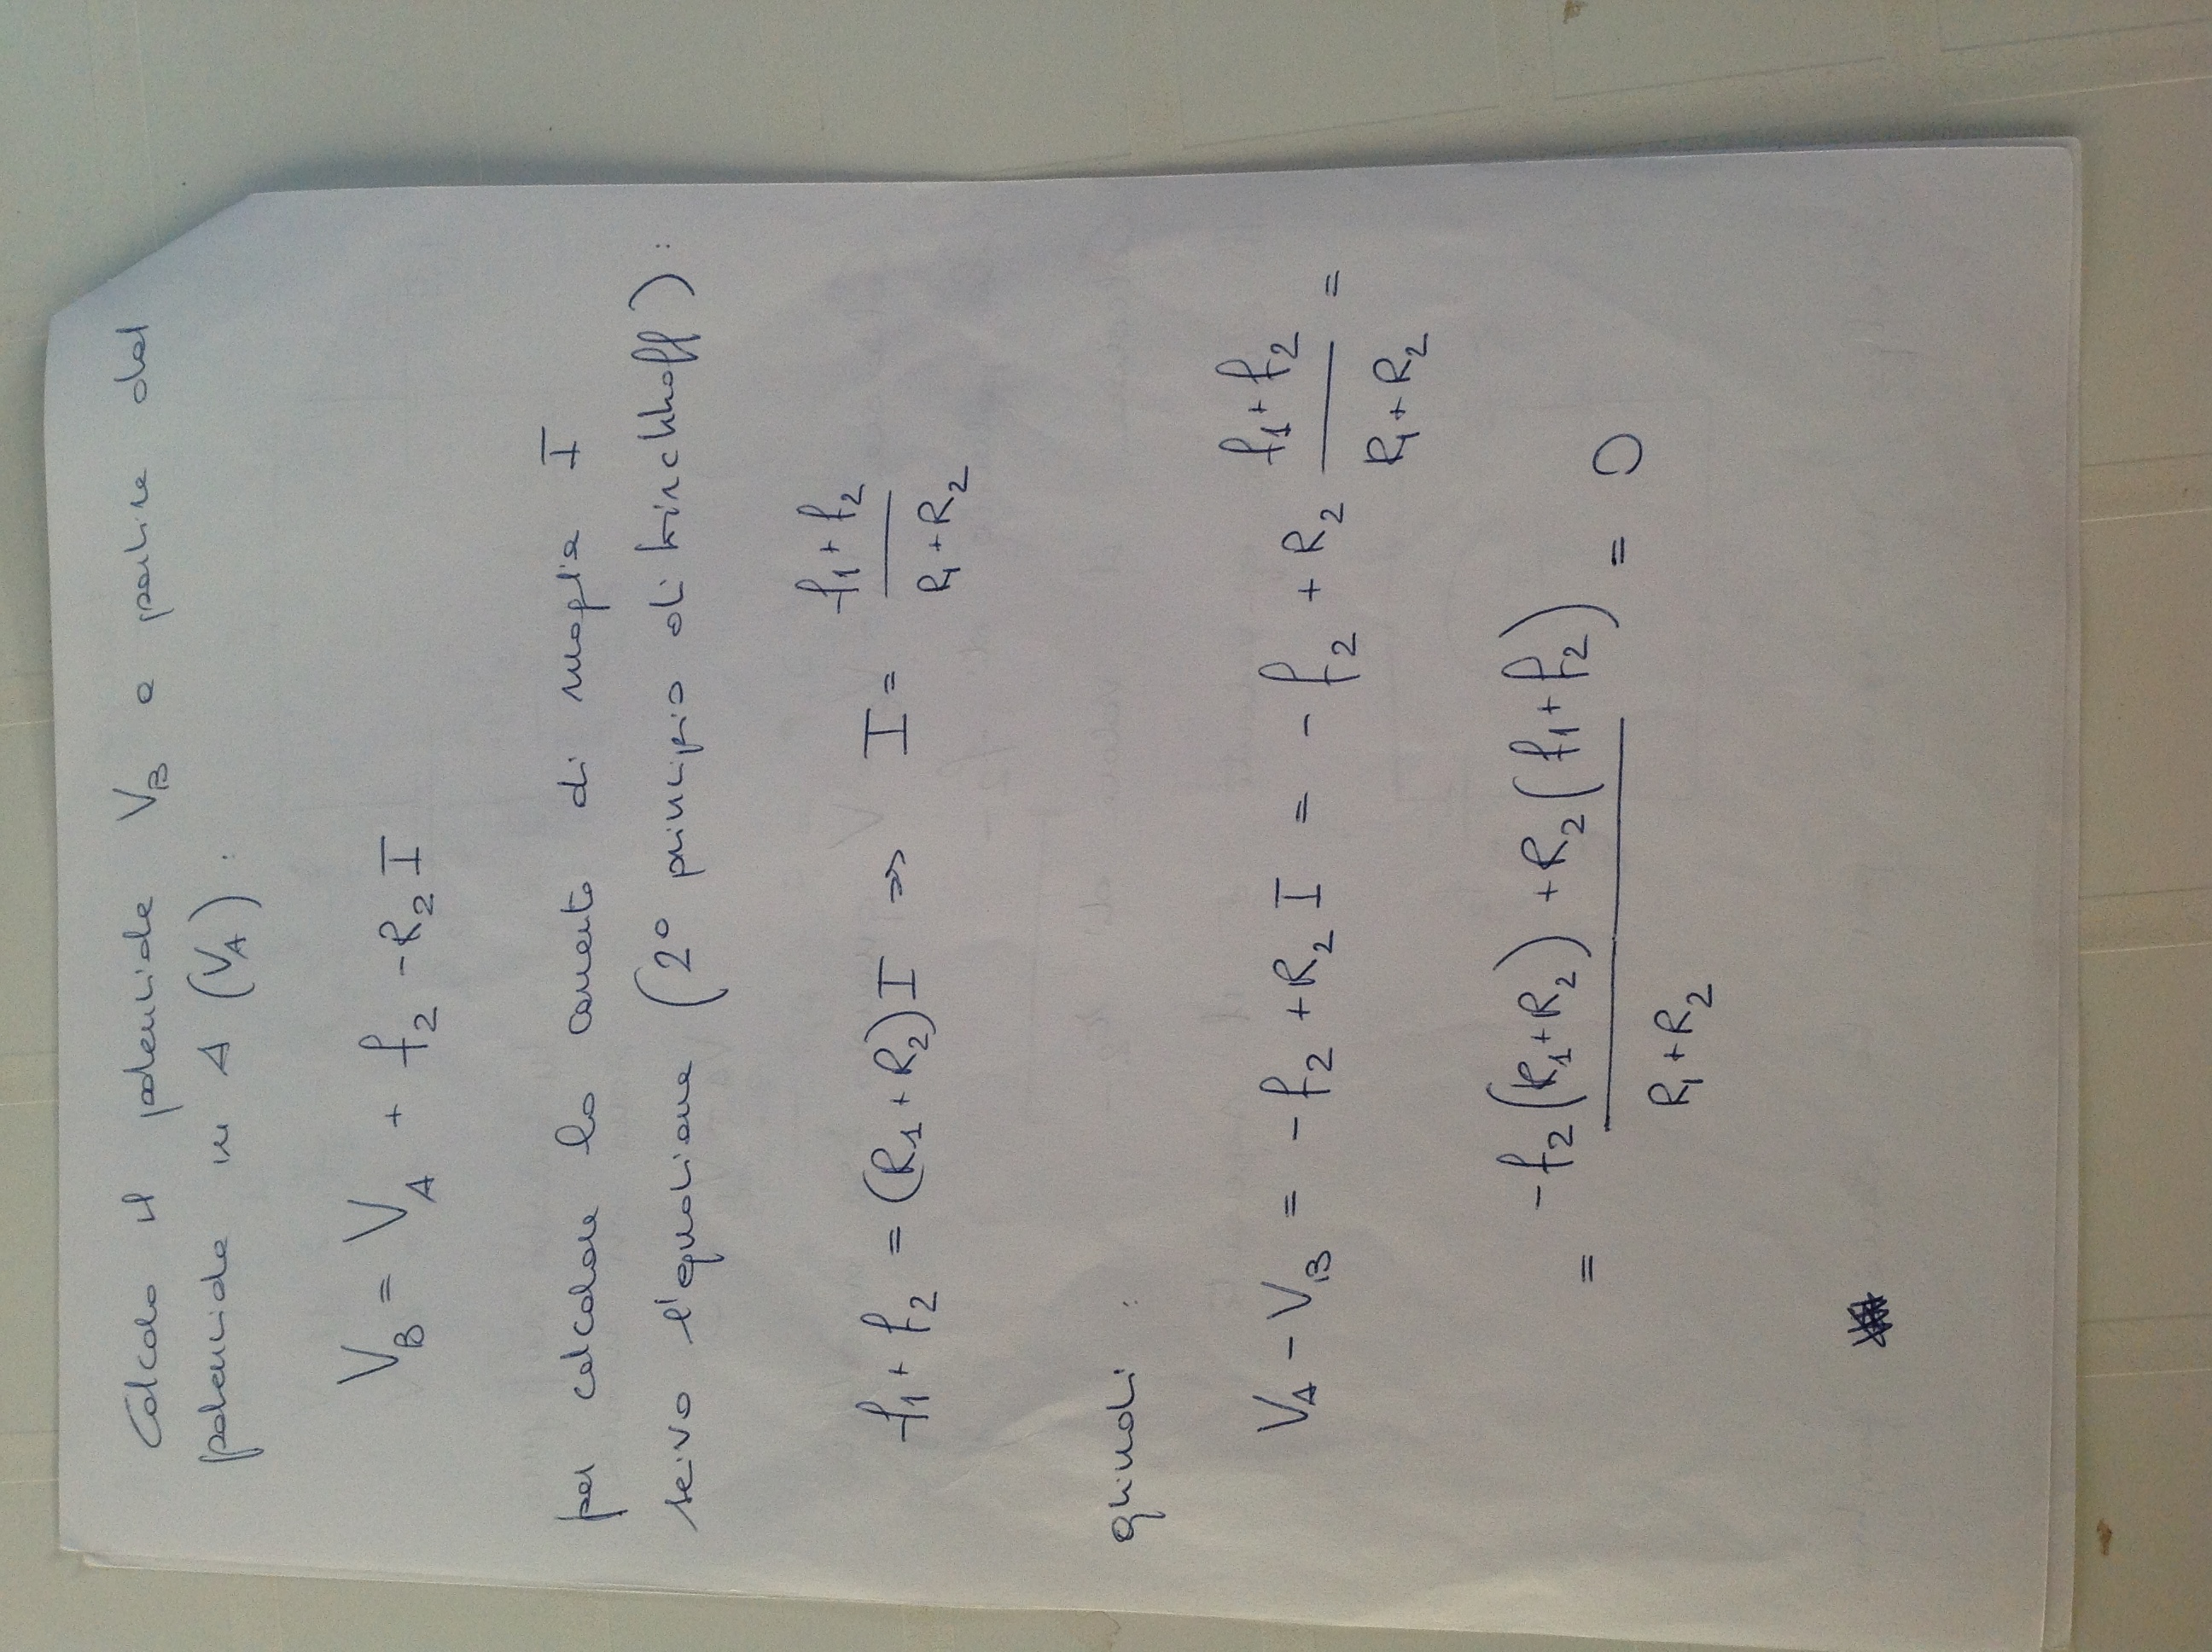 Calcolo il potenziale V_B a partire dal
potenziale in A (V_A) :
V_B = V_A + f_2 - R_2 I
per calcolare la corrente di maglia I
scrivo l'equazione (2° principio di Kirchhoff) :
f_1 + f_2 = (R_1 + R_2) I => I = (f_1 + f_2) / (R_1 + R_2)
quindi :
V_A - V_B = - f_2 + R_2 I = - f_2 + R_2 (f_1 + f_2) / (R_1 + R_2) =
= (-f_2 (R_1 + R_2) + R_2 (f_1 + f_2)) / (R_1 + R_2) = 0